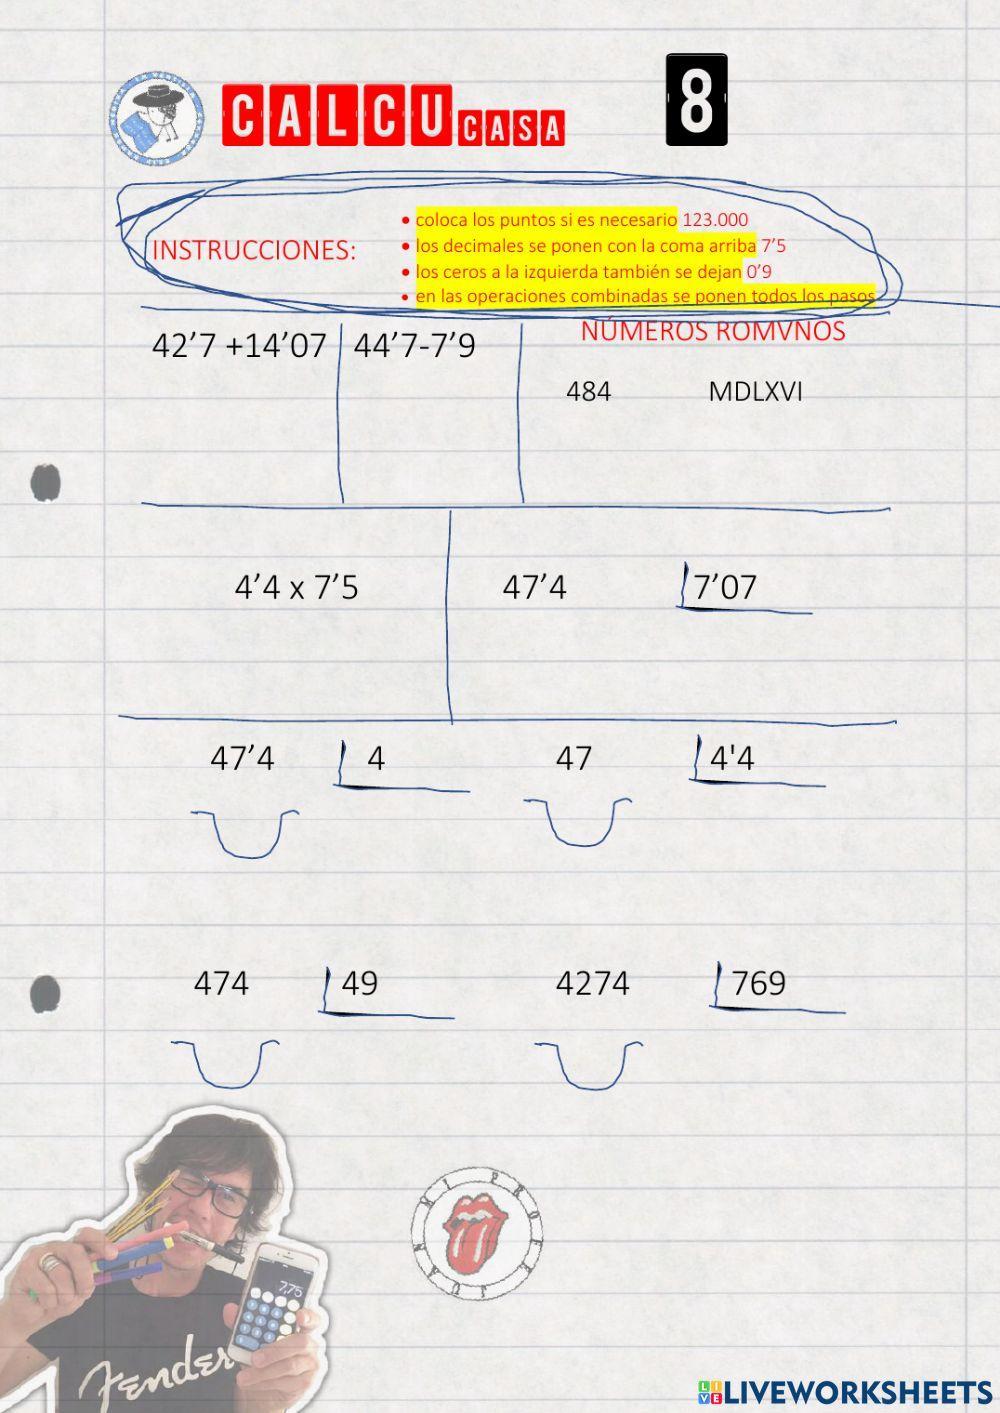 CALCU CASA 8
INSTRUCCIONES:
• coloca los puntos si es necesario 123.000
• los decimales se ponen con la coma arriba 7’5
• los ceros a la izquierda también se dejan 0’9
• en las operaciones combinadas se ponen todos los pasos
NÚMEROS ROMVNOS
42’7 +14’07 44’7-7’9
484 MDLXVI
4’4 x 7’5 47’4 7’07
47’4 4 47 4'4
474 49 4274 769
MI PROFE JUAN
7,75
Fender
LIVEWORKSHEETS